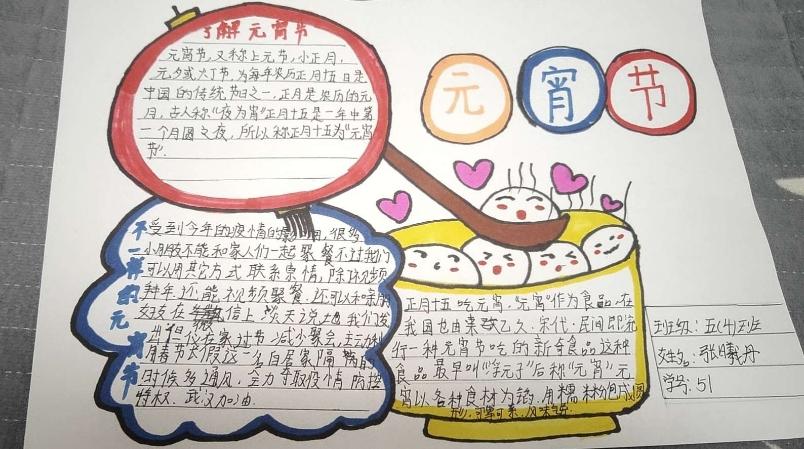 了解元宵节
元宵节,又称上元节,小正月,
元夕或火丁节,为每年农历正月十五日是
中国的传统节日之一,正月是农历的元
月,古人称“夜为宵”正月十五是一年中第
一个月圆之夜,所以称正月十五为“元宵
节”.
元宵节
不一样的元宵节
受到今年的疫情的影响,很多
小朋友不能和家人们一起聚餐不过我们
可以用其它方式联系亲情,除
拜年还能视频聚餐还可以和
信上谈天说地我们
但在家过节减少聚会,
用春节大假这
时候多通风,全力争取疫情防控
武汉加油
正月十五吃元宵.“元宵”作为食品,在
我国也由来已久.宋代.民间即流
行一种元宵节吃的新奇食品这种
食品最早叫“浮元子”后称“元宵”元
宵以各种食材为馅.用糯米粉包成圆
形,可荤可素,风味
班级:五(4)班
姓名:张曦丹
学号:51